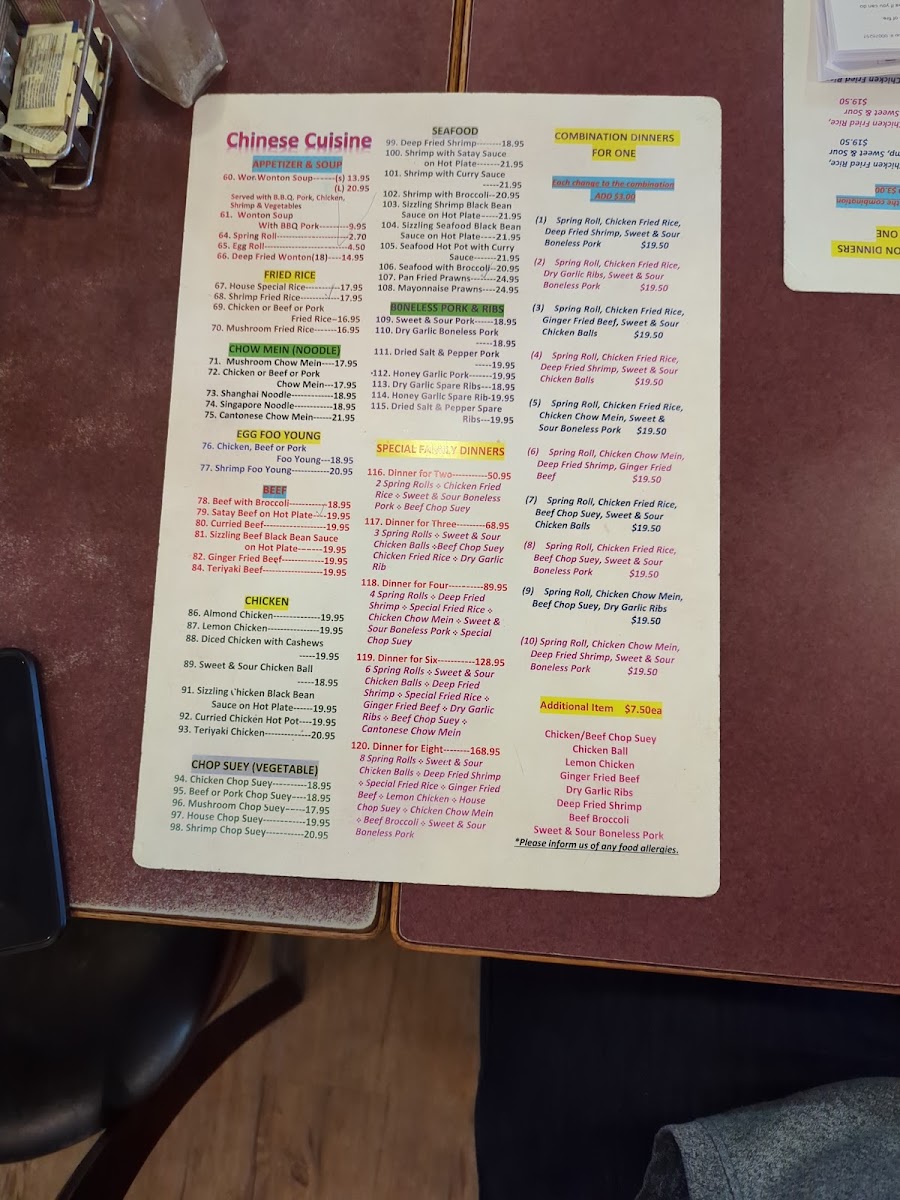 Chinese Cuisine
APPETIZER & SOUP
60. Wor Wonton Soup-------(s) 13.95
(L) 20.95
Served with B.B.Q. Pork, Chicken,
Shrimp & Vegetables
61. Wonton Soup
With BBQ Pork---------9.95
64. Spring Roll---------------2.70
65. Egg Roll-----------------4.50
66. Deep Fried Wonton(18)----14.95
FRIED RICE
67. House Special Rice-------17.95
68. Shrimp Fried Rice--------17.95
69. Chicken or Beef or Pork
Fried Rice--16.95
70. Mushroom Fried Rice------16.95
CHOW MEIN (NOODLE)
71. Mushroom Chow Mein----17.95
72. Chicken or Beef or Pork
Chow Mein---17.95
73. Shanghai Noodle-----------18.95
74. Singapore Noodle----------18.95
75. Cantonese Chow Mein------21.95
EGG FOO YOUNG
76. Chicken, Beef or Pork
Foo Young---18.95
77. Shrimp Foo Young----------20.95
BEEF
78. Beef with Broccoli----------18.95
79. Satay Beef on Hot Plate---19.95
80. Curried Beef---------------19.95
81. Sizzling Beef Black Bean Sauce
on Hot Plate--------19.95
82. Ginger Fried Beef-----------19.95
84. Teriyaki Beef---------------19.95
CHICKEN
86. Almond Chicken------------19.95
87. Lemon Chicken-------------19.95
88. Diced Chicken with Cashews
-----19.95
89. Sweet & Sour Chicken Ball
-----18.95
91. Sizzling Chicken Black Bean
Sauce on Hot Plate------19.95
92. Curried Chicken Hot Pot----19.95
93. Teriyaki Chicken------------20.95
CHOP SUEY (VEGETABLE)
94. Chicken Chop Suey----------18.95
95. Beef or Pork Chop Suey----18.95
96. Mushroom Chop Suey-----17.95
97. House Chop Suey----------19.95
98. Shrimp Chop Suey----------20.95
SEAFOOD
99. Deep Fried Shrimp--------18.95
100. Shrimp with Satay Sauce
on Hot Plate------21.95
101. Shrimp with Curry Sauce
-----21.95
102. Shrimp with Broccoli--20.95
103. Sizzling Shrimp Black Bean
Sauce on Hot Plate-----21.95
104. Sizzling Seafood Black Bean
Sauce on Hot Plate----21.95
105. Seafood Hot Pot with Curry
Sauce-------21.95
106. Seafood with Broccoli--20.95
107. Pan Fried Prawns-------24.95
108. Mayonnaise Prawns----24.95
BONELESS PORK & RIBS
109. Sweet & Sour Pork-----18.95
110. Dry Garlic Boneless Pork
-----18.95
111. Dried Salt & Pepper Pork
-----19.95
112. Honey Garlic Pork-------19.95
113. Dry Garlic Spare Ribs---18.95
114. Honey Garlic Spare Rib-19.95
115. Dried Salt & Pepper Spare
Ribs---19.95
SPECIAL FAMILY DINNERS
116. Dinner for Two-----------50.95
2 Spring Rolls ⬦ Chicken Fried
Rice ⬦ Sweet & Sour Boneless
Pork ⬦ Beef Chop Suey
117. Dinner for Three---------68.95
3 Spring Rolls ⬦ Sweet & Sour
Chicken Balls ⬦Beef Chop Suey
Chicken Fried Rice ⬦ Dry Garlic
Rib
118. Dinner for Four-----------89.95
4 Spring Rolls ⬦ Deep Fried
Shrimp ⬦ Special Fried Rice ⬦
Chicken Chow Mein ⬦ Sweet &
Sour Boneless Pork ⬦ Special
Chop Suey
119. Dinner for Six-----------128.95
6 Spring Rolls ⬦ Sweet & Sour
Chicken Balls ⬦ Deep Fried
Shrimp ⬦ Special Fried Rice ⬦
Ginger Fried Beef ⬦ Dry Garlic
Ribs ⬦ Beef Chop Suey ⬦
Cantonese Chow Mein
120. Dinner for Eight--------168.95
8 Spring Rolls ⬦ Sweet & Sour
Chicken Balls ⬦ Deep Fried Shrimp
⬦ Special Fried Rice ⬦ Ginger Fried
Beef ⬦ Lemon Chicken ⬦ House
Chop Suey ⬦ Chicken Chow Mein
⬦ Beef Broccoli ⬦ Sweet & Sour
Boneless Pork
COMBINATION DINNERS
FOR ONE
Each change to the combination
ADD $3.00
(1) Spring Roll, Chicken Fried Rice,
Deep Fried Shrimp, Sweet & Sour
Boneless Pork $19.50
(2) Spring Roll, Chicken Fried Rice,
Dry Garlic Ribs, Sweet & Sour
Boneless Pork $19.50
(3) Spring Roll, Chicken Fried Rice,
Ginger Fried Beef, Sweet & Sour
Chicken Balls $19.50
(4) Spring Roll, Chicken Fried Rice,
Deep Fried Shrimp, Sweet & Sour
Chicken Balls $19.50
(5) Spring Roll, Chicken Fried Rice,
Chicken Chow Mein, Sweet &
Sour Boneless Pork $19.50
(6) Spring Roll, Chicken Chow Mein,
Deep Fried Shrimp, Ginger Fried
Beef $19.50
(7) Spring Roll, Chicken Fried Rice,
Beef Chop Suey, Sweet & Sour
Chicken Balls $19.50
(8) Spring Roll, Chicken Fried Rice,
Beef Chop Suey, Sweet & Sour
Boneless Pork $19.50
(9) Spring Roll, Chicken Chow Mein,
Beef Chop Suey, Dry Garlic Ribs
$19.50
(10) Spring Roll, Chicken Chow Mein,
Deep Fried Shrimp, Sweet & Sour
Boneless Pork $19.50
Additional Item $7.50ea
Chicken/Beef Chop Suey
Chicken Ball
Lemon Chicken
Ginger Fried Beef
Dry Garlic Ribs
Deep Fried Shrimp
Beef Broccoli
Sweet & Sour Boneless Pork
*Please inform us of any food allergies.
ON DINNERS
ONE
the combination
D $3.00
Chicken Fried Rice,
p, Sweet & Sour
$19.50
Chicken Fried Rice,
Sweet & Sour
$19.50